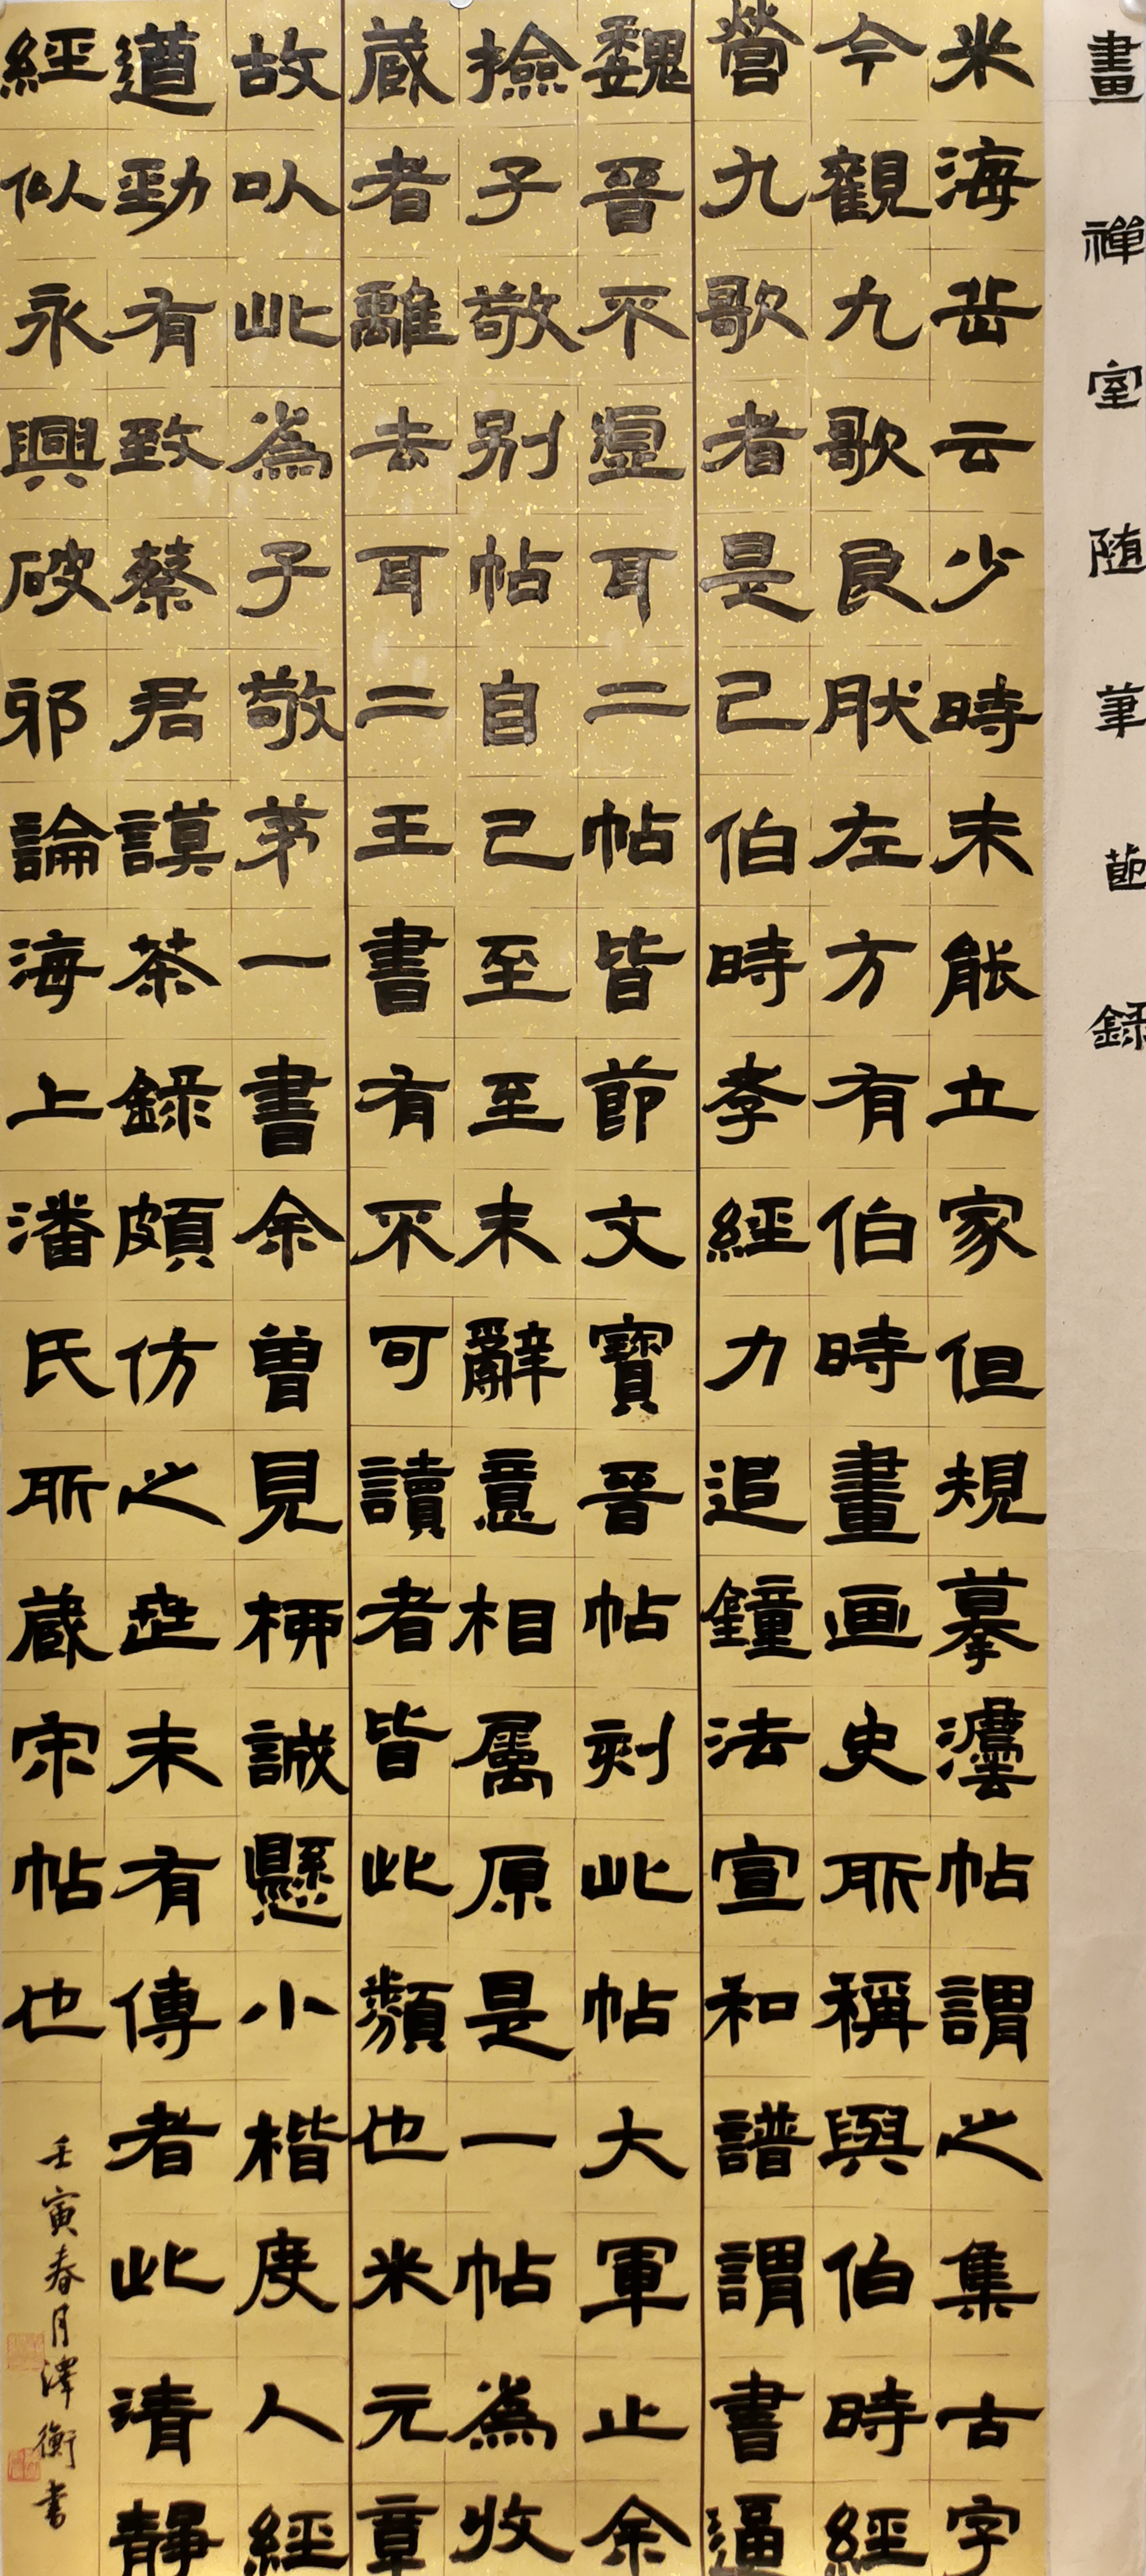 畫禪室隨筆節錄
米海岳云少時未能立家但規摹灋帖謂之集古字
今觀九歌良肰左方有伯時畫画史所稱與伯時經
營九歌者是已伯時孝經力追鐘法宣和譜謂書逼
魏晉不虛耳二帖皆節文寶晉帖刻此帖大軍止余
撿子敬別帖自己至至末辭意相屬原是一帖為收
藏者離去耳二王書有不可讀者皆此類也米元章
故以此為子敬第一書余曾見柳誠懸小楷度人經
遒勁有致蔡君謨茶錄頗仿之迹未有傳者此清靜
經似永興破邪論海上潘氏所藏宋帖也
壬寅春月澤衡書